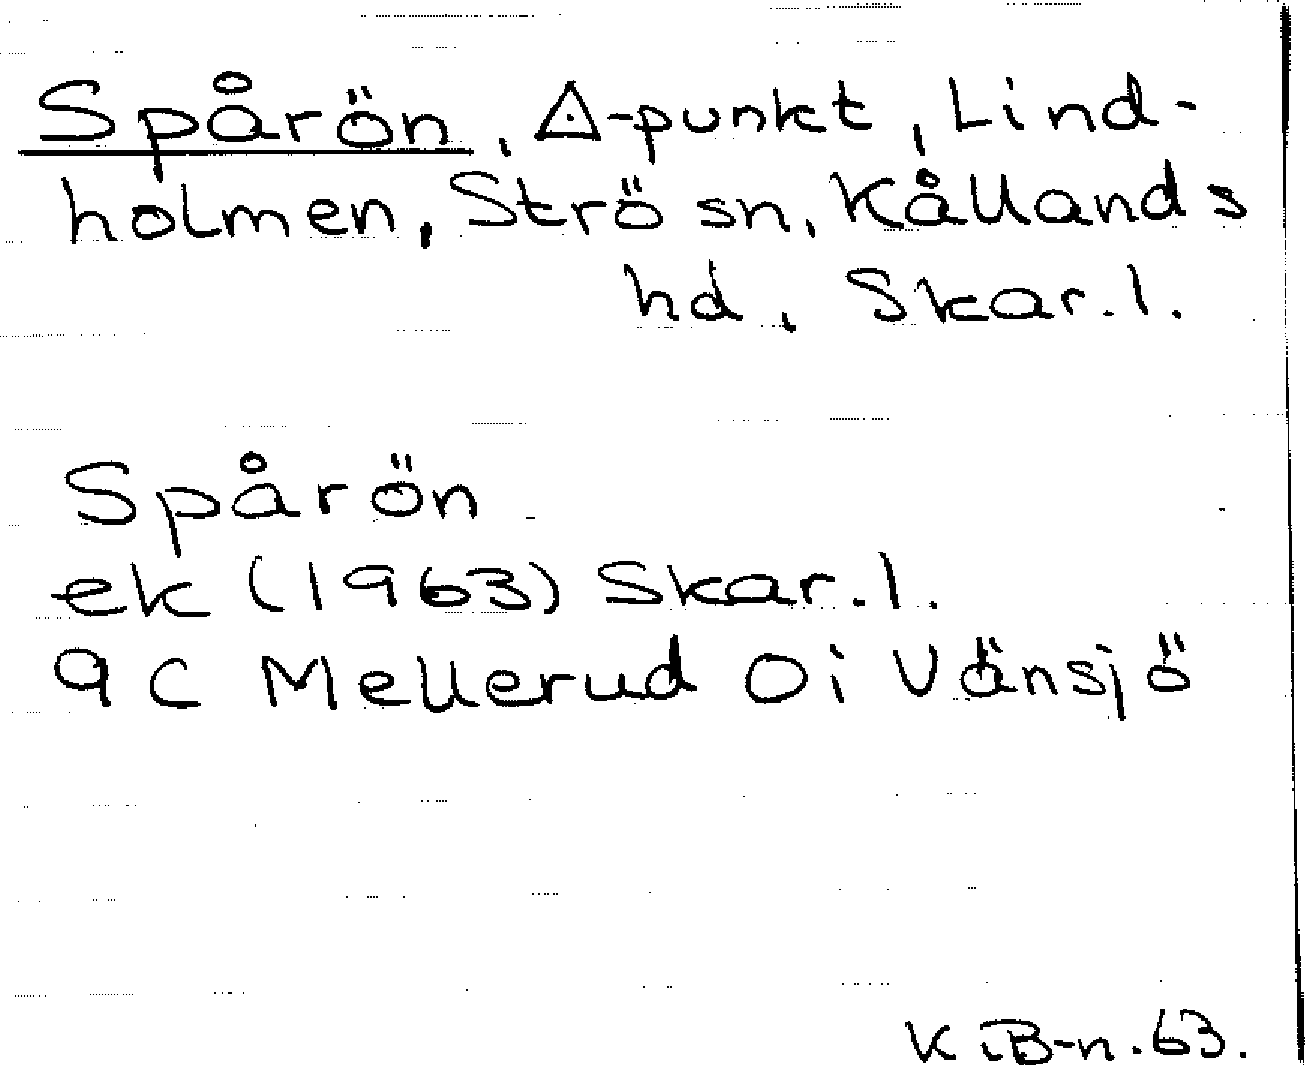 Spårön, △-punkt, Lind-
holmen, Strö sn, Kållands
hd, Skar. l.
Spårön
ek (1963) Skar. l.
9C Mellerud 0i Vänsjö
K iB-n. 63.